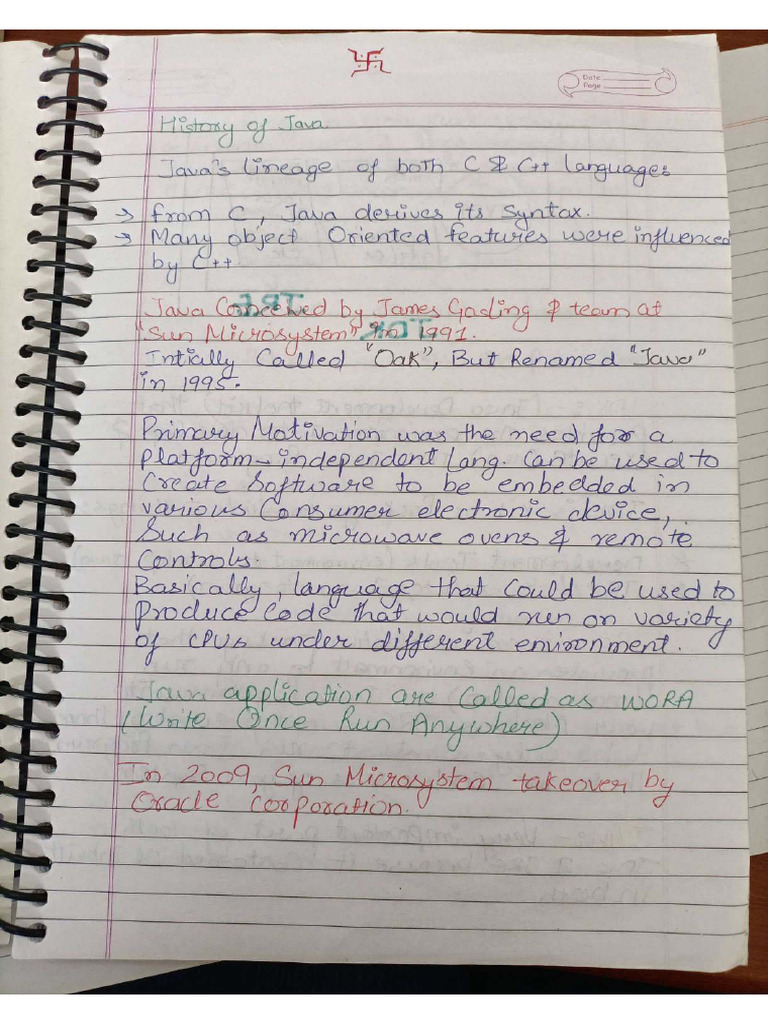 卐
Date
Page
History of Java
Java's lineage of both C & C++ languages
→ from C, Java derives its Syntax.
→ Many object Oriented features were influenced
by C++.
Java Conceived by James Gosling & team at
"Sun Microsystem" in 1991.
Intially Called "Oak", But Renamed "Java"
in 1995.
Primary Motivation was the need for a
platform-independent lang. Can be used to
Create Software to be embedded in
various Consumer electronic device,
Such as microwave ovens & remote
Controls.
Basically, language that Could be used to
Produce Code that would run on variety
of CPUs under different environment.
Java application are Called as WORA
(Write Once Run Anywhere)
In 2009, Sun Microsystem takeover by
Oracle Corporation.